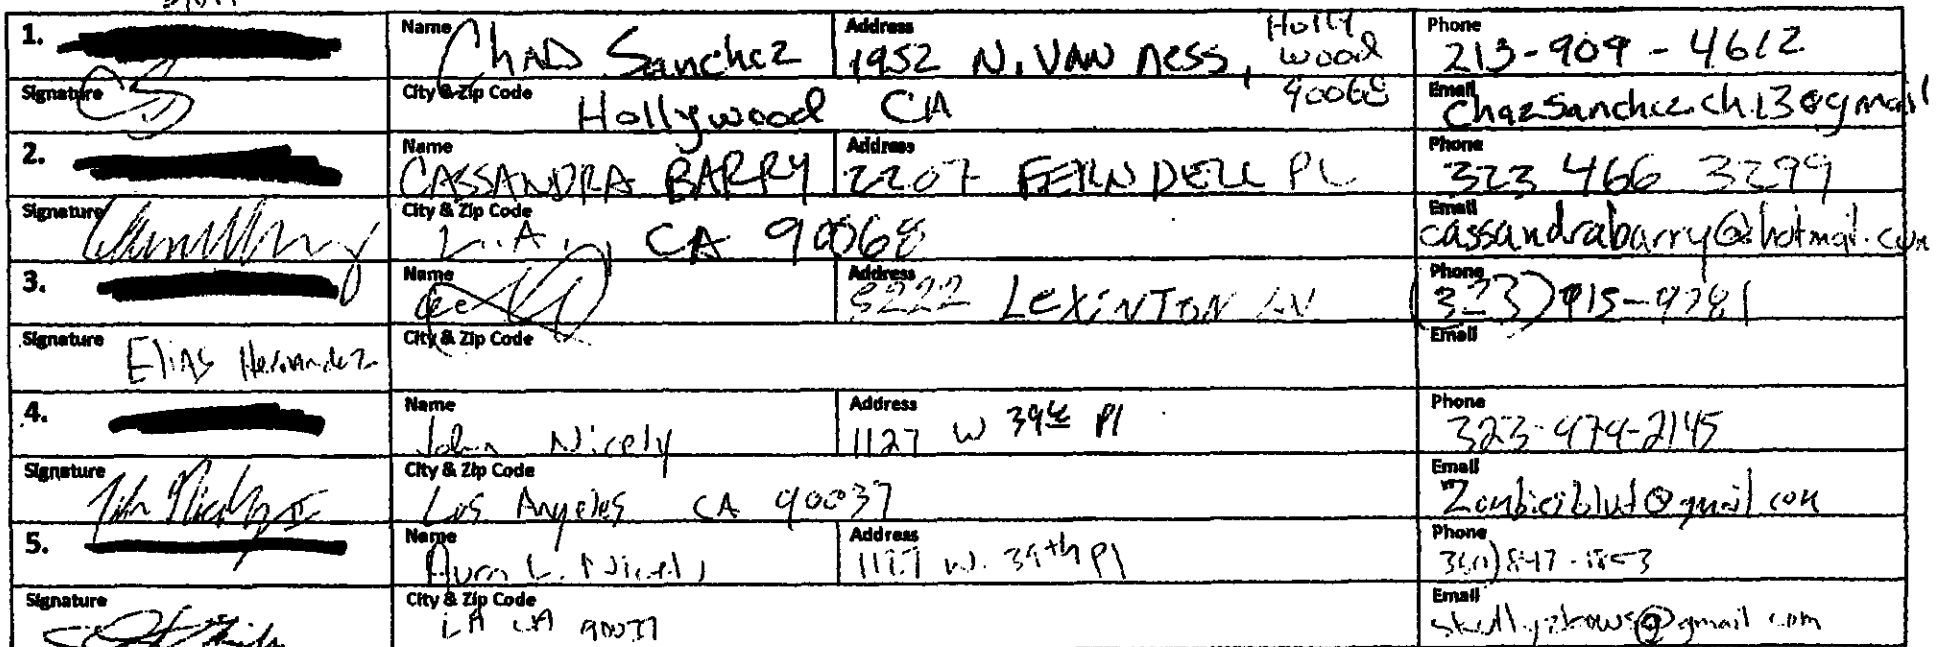 1. Name Chad Sanchez Address 1952 N. VAN NESS, Holly wood 90068 Phone 213-909-4612
Signature City & Zip Code Hollywood CA Email chazsanchez.ch13@gmail
2. Name CASSANDRA BARRY Address 2207 FERNDELL PL Phone 323 466 3299
Signature City & Zip Code L.A., CA 90068 Email cassandrabarry@hotmail.com
3. Name Address 5222 LEXINTON AV Phone (323) 915-9781
Signature Elias Hernandez City & Zip Code Email
4. Name John Nicely Address 1127 W 39th Pl Phone 323-474-2145
Signature City & Zip Code Los Angeles CA 90037 Email @gmail com
5. Name L. Nicely Address 1127 W. 39th Pl Phone
Signature City & Zip Code LA CA 90037 Email @gmail com